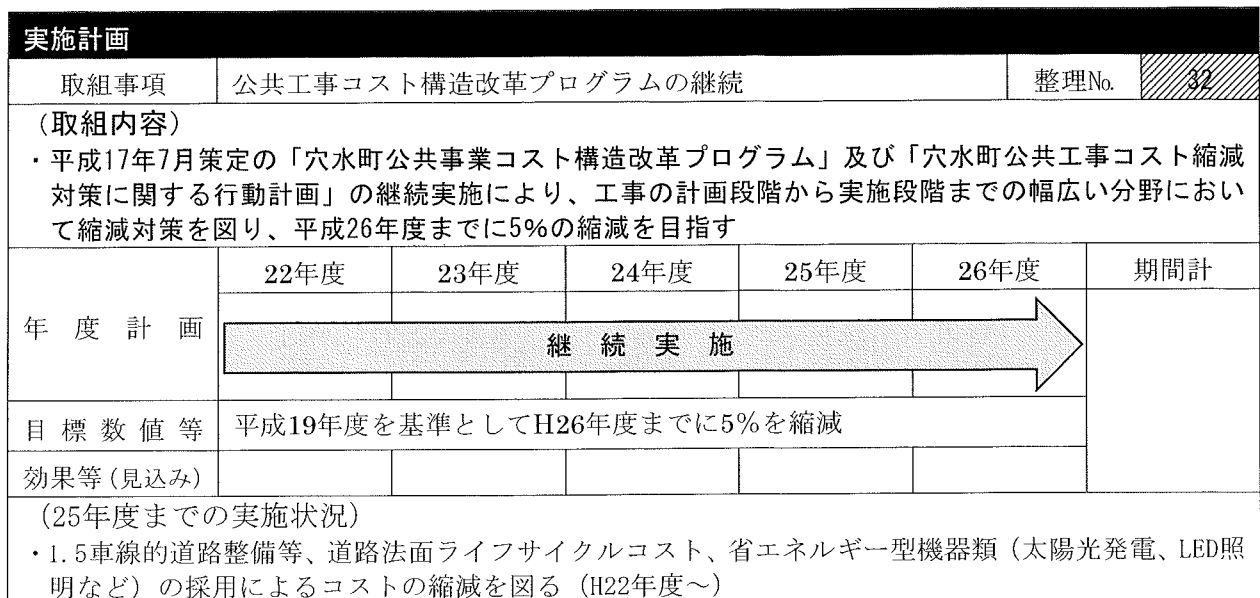 実施計画
取組事項 公共工事コスト構造改革プログラムの継続 整理No. 32
(取組内容)
・平成17年7月策定の「穴水町公共事業コスト構造改革プログラム」及び「穴水町公共工事コスト縮減
対策に関する行動計画」の継続実施により、工事の計画段階から実施段階までの幅広い分野におい
て縮減対策を図り、平成26年度までに5%の縮減を目指す
22年度 23年度 24年度 25年度 26年度 期間計
年度計画 継続実施
目標数値等 平成19年度を基準としてH26年度までに5%を縮減
効果等(見込み)
(25年度までの実施状況)
・1.5車線的道路整備等、道路法面ライフサイクルコスト、省エネルギー型機器類（太陽光発電、LED照
明など）の採用によるコストの縮減を図る（H22年度～）